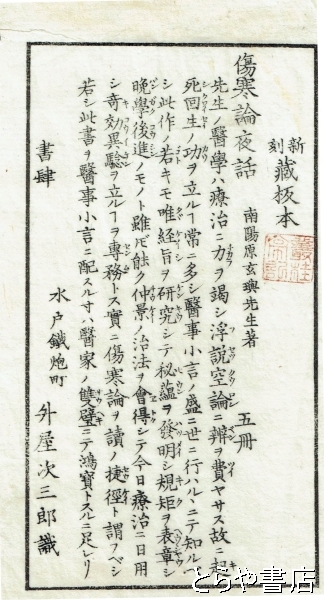 新刻 藏板本
傷寒論夜話 南陽原玄璵先生著 五冊
先生ノ醫學ハ療治ニ力ヲ竭シ浮説空論ニ辨ヲ費ヤサス故ニ起
死回生ノ功ヲ立ルヿ常ニ多シ醫事小言ノ盛ニ世ニ行ハルヽニテ知ルヘ
シ此作ノ若キモ唯經旨ヲ研究シテ秘蘊ヲ發明シ規矩ヲ表章シ
晩學後進ノモノト雖𪜈能ク仲景ノ治法ヲ會得シテ今日療治ニ日用
シ奇効異驗ヲ立ルヿヲ專務トス實ニ傷寒論ヲ讀ノ捷徑ト謂フベシ
若シ此書ヲ醫事小言ニ配スル寸ハ醫家ノ雙璧ニテ鴻寶トスルニ足レリ
書肆 水戸鐵炮町 外屋次三郎識
とらや書店